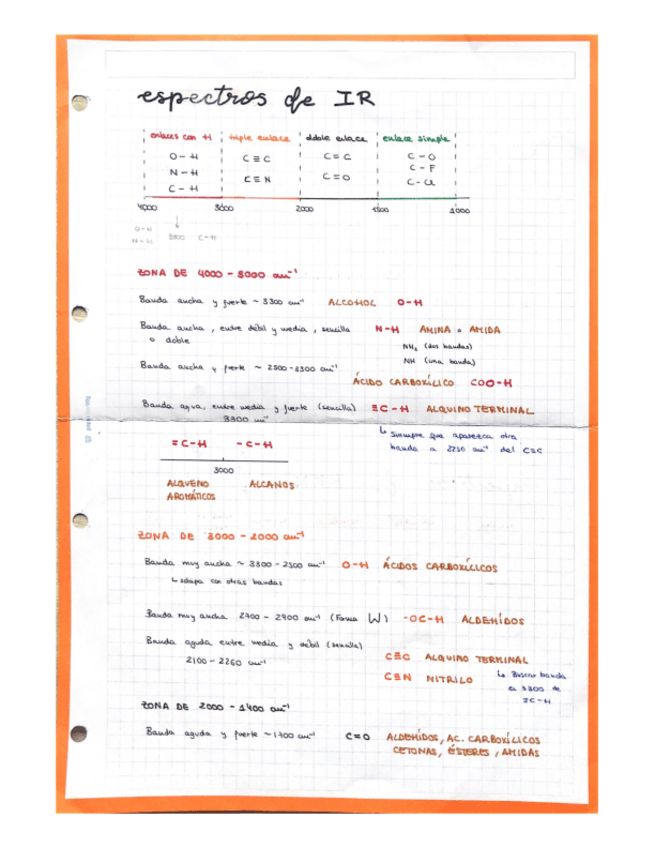 espectros de IR
enlaces con H triple enlace doble enlace enlace simple
O-H C≡C C=C C-O
N-H C≡N C=O C-F
C-H C-Cl
4000 3000 2000 1500 1000
O-H
N-H 3300 C-H
ZONA DE 4000 - 3000 cm⁻¹
Banda ancha y fuerte ~ 3300 cm⁻¹ ALCOHOL O-H
Banda ancha, entre débil y media, sencilla N-H AMINA o AMIDA
o doble NH₂ (dos bandas)
NH (una banda)
Banda ancha y fuerte ~ 2500-3300 cm⁻¹
ÁCIDO CARBOXÍLICO COO-H
Banda aguda, entre media y fuerte (sencilla) ≡C-H ALQUINO TERMINAL
3300 cm⁻¹
↳ Siempre que aparezca otra
banda a 2250 cm⁻¹ del C≡C
=C-H -C-H
3000
ALQUENO ALCANOS
AROMÁTICOS
ZONA DE 3000 - 2000 cm⁻¹
Banda muy ancha ~ 3300 - 2500 cm⁻¹ O-H ÁCIDOS CARBOXÍLICOS
↳ solapa con otras bandas
Banda muy ancha 2700 - 2900 cm⁻¹ (Forma W) -OC-H ALDEHÍDOS
Banda aguda entre media y débil (sencilla)
2100 - 2260 cm⁻¹
C≡C ALQUINO TERMINAL
C≡N NITRILO
↳ Buscar banda
a 3300 de
≡C-H
ZONA DE 2000 - 1400 cm⁻¹
Banda aguda y fuerte ~1700 cm⁻¹ C=O ALDEHÍDOS, AC. CARBOXÍLICOS
CETONAS, ÉSTERES, AMIDAS